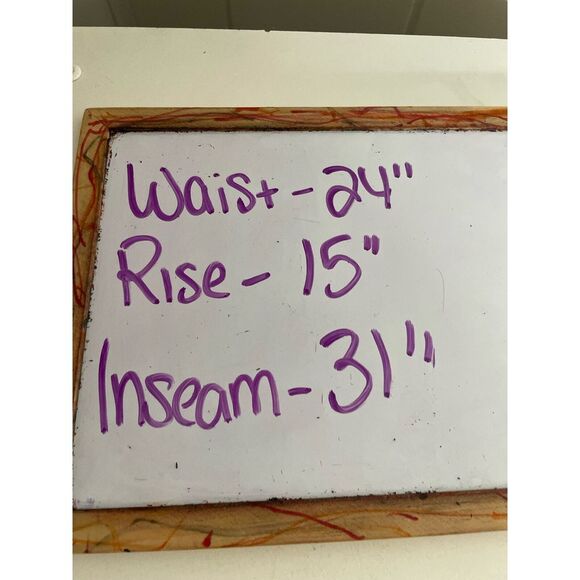 Waist - 24"
Rise - 15"
Inseam - 31"